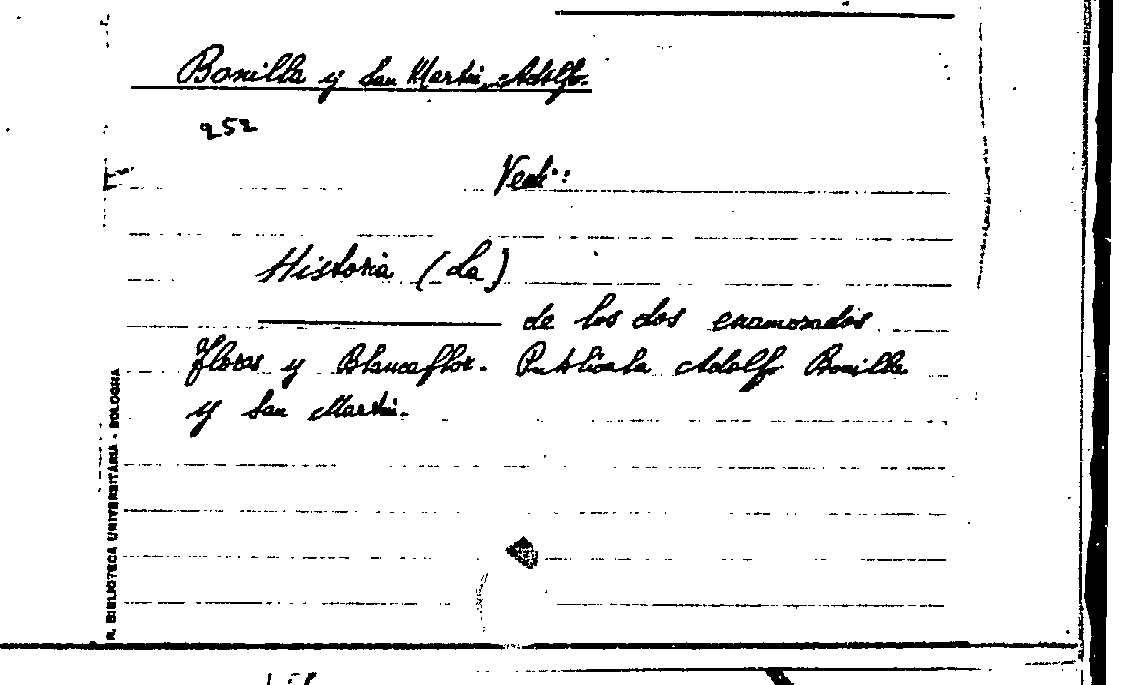 Bonilla y San Martin, Adolfo.
252
Vedi:
Historia (La)
de los dos enamorados
Flores y Blancaflor. Publicala Adolfo Bonilla
y San Martin.
R. BIBLIOTECA UNIVERSITARIA - BOLOGNA